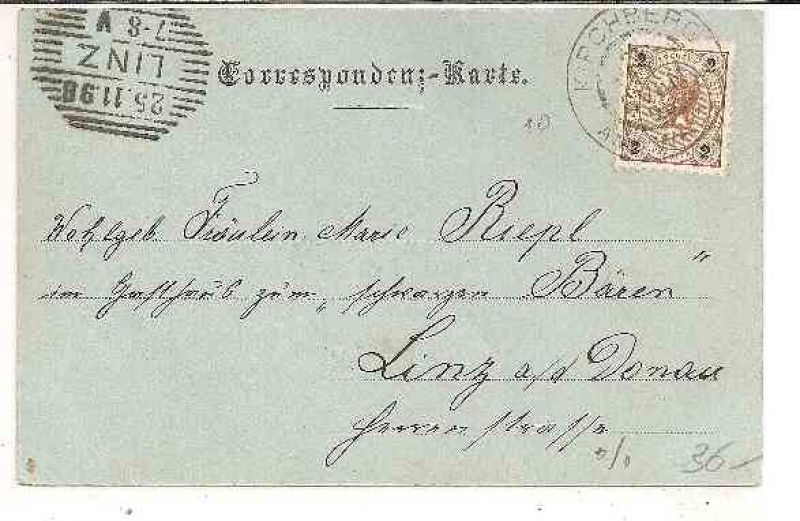 Correspondenz-Karte.
25.11.98
LINZ
7-8 V
KIRCHBERG
2 2
2 2
Wohlgeb. Fräulein Marie Riepl
im Gasthaus zum „schwarzen Bären"
Linz a/d Donau
Herrenstrasse
36-